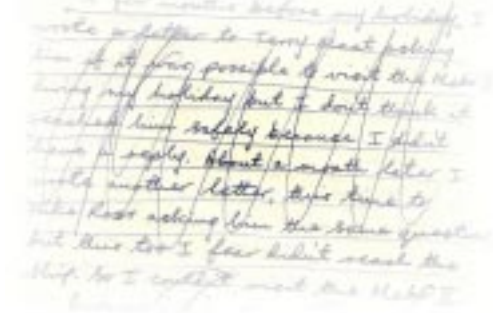 few months before my holiday I
wrote a letter to Terry asking
him if it was possible to visit the Mebo I
during my holiday but I don't think it
reached him safely because I didn't
have a reply. About a month later I
wrote another letter, this time to
Mike Ross asking him the same question
but this too I fear didn't reach the
ship. So I couldn't visit the Mebo I